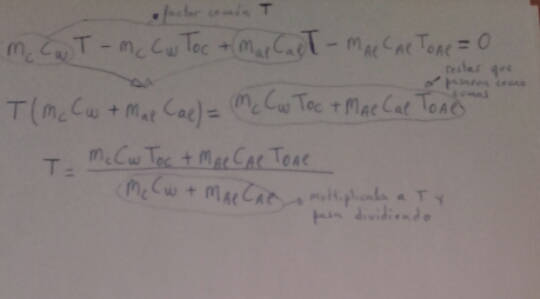 • factor común T
m_c C_w T - m_c C_w T_oc + m_ae C_ae T - m_Ae C_Ae T_oAe = 0
restas que
pasaron como
sumas
T(m_c C_w + m_ae C_ae) = m_c C_w T_oc + m_Ae C_ae T_oAe
T = m_c C_w T_oc + m_Ae C_Ae T_oAe
m_c C_w + m_Ae C_Ae
multiplicaba a T y
pasa dividiendo